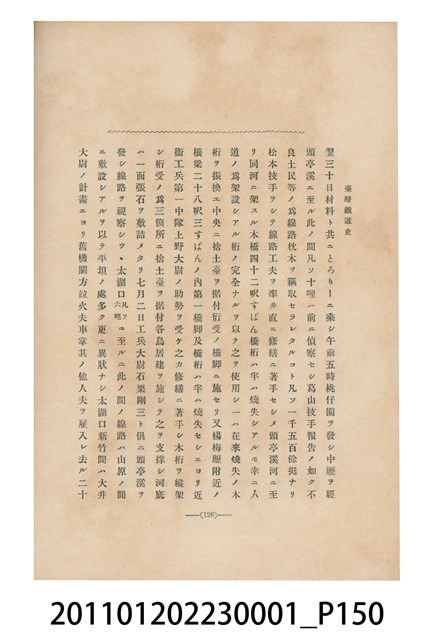 臺灣鐵道史
翌三十日材料ト共ニとろりーニ乘シ午前五時桃仔園ヲ發シ中壢ヲ經
頭亭溪ニ至ル此ノ間凡ソ十哩ハ前ニ偵察セシ葛山技手報告ノ如ク不
良土民等ノ爲線路枕木ヲ竊取セラレタルコト凡ソ一千五百餘挺ナリ
松本技手ヲシテ線路工夫ヲ率井直ニ修繕ニ著手セシメ頭亭溪河ニ至
リ同河ニ架スル木橋四十二呎すぱん橋桁ハ半ハ燒失シアルモ幸ニ人
道ノ爲架設シアル桁ノ完全ナルヲ以テ之ヲ使用シ一ハ在來燒失ノ木
桁ヲ振換エ中央ニ捨土臺ヲ据付衍受ノ橋脚ニ施セリ又楊梅壢附近ノ
橋梁二十八呎三すぱんノ內第一橋脚及橋桁ハ半ハ燒失セシニヨリ近
衞工兵第一中隊上野大尉ノ助勢ヲ受ケ之カ修繕ニ著手シ木桁ヲ縱架
シ桁受ノ爲三箇所ニ捨土臺ヲ据付各鳥居建ヲ施シテ之ヲ支撑シ河底
ハ一面張石ヲ敷詰メタリ七月二日工兵大尉石栗剛三ト俱ニ頭亭溪ヲ
發シ線路ヲ視察シツヽ太湖口凡ソ六哩ニ至ルニ此ノ間ノ線路ハ山原ノ間
ニ敷設シアルヲ以テ平坦ノ處多ク更ニ異狀ナシ太湖口新竹間ハ大井
大尉ノ計畫ニヨリ舊機關方竝火夫車掌其ノ他人夫ヲ雇入レ去ル二十
(126)
201101202230001_P150